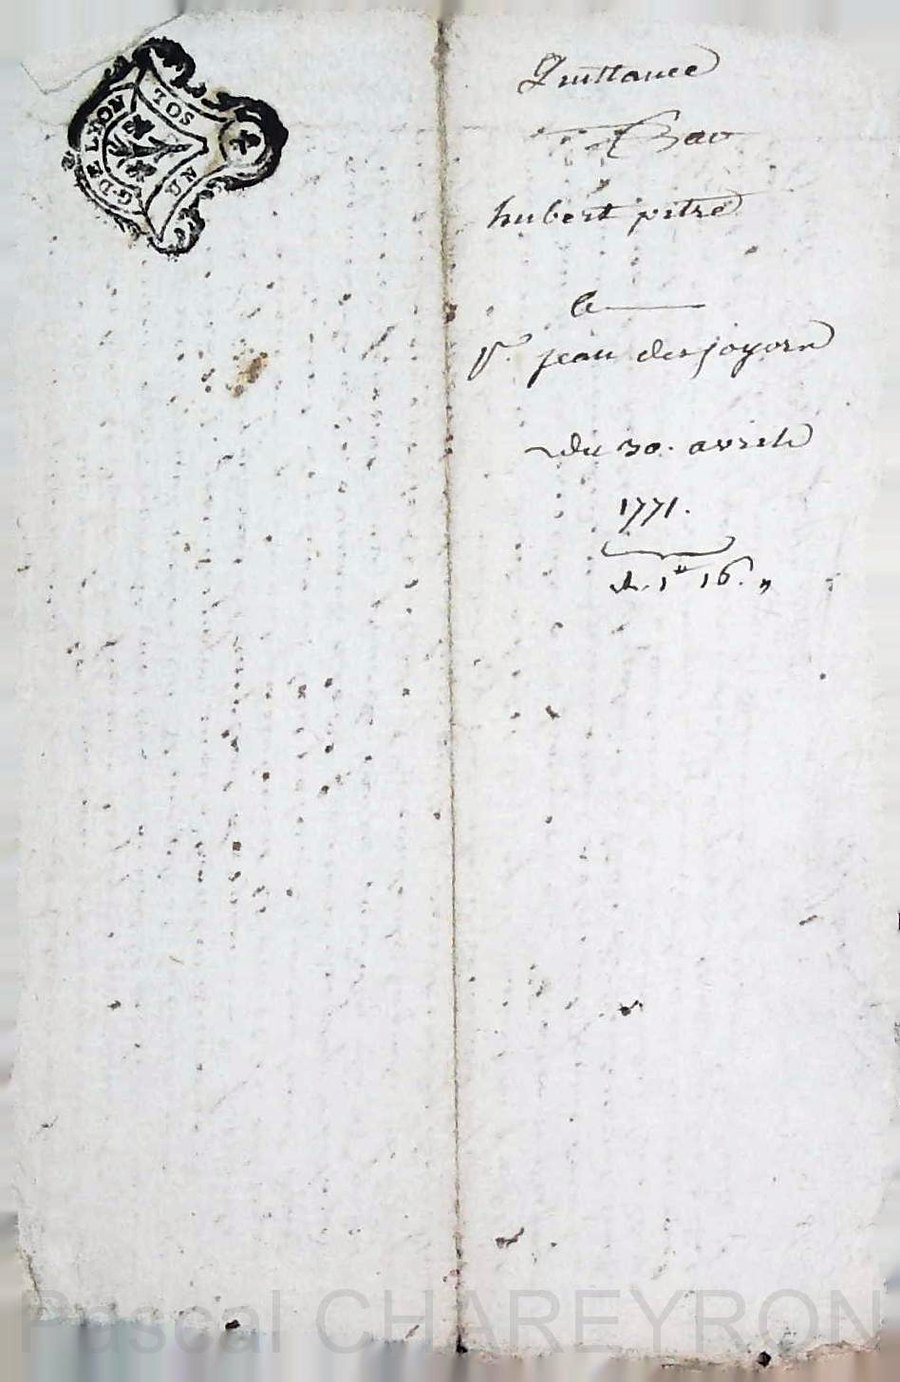 G·DE L·HON
UN
SOL
TOS
Quittance
Pour
hubert pitre
Ce
Sr. jean desjoyora
Du 30. avril
1771.
de. 1# 16. "
Pascal CHAREYRON